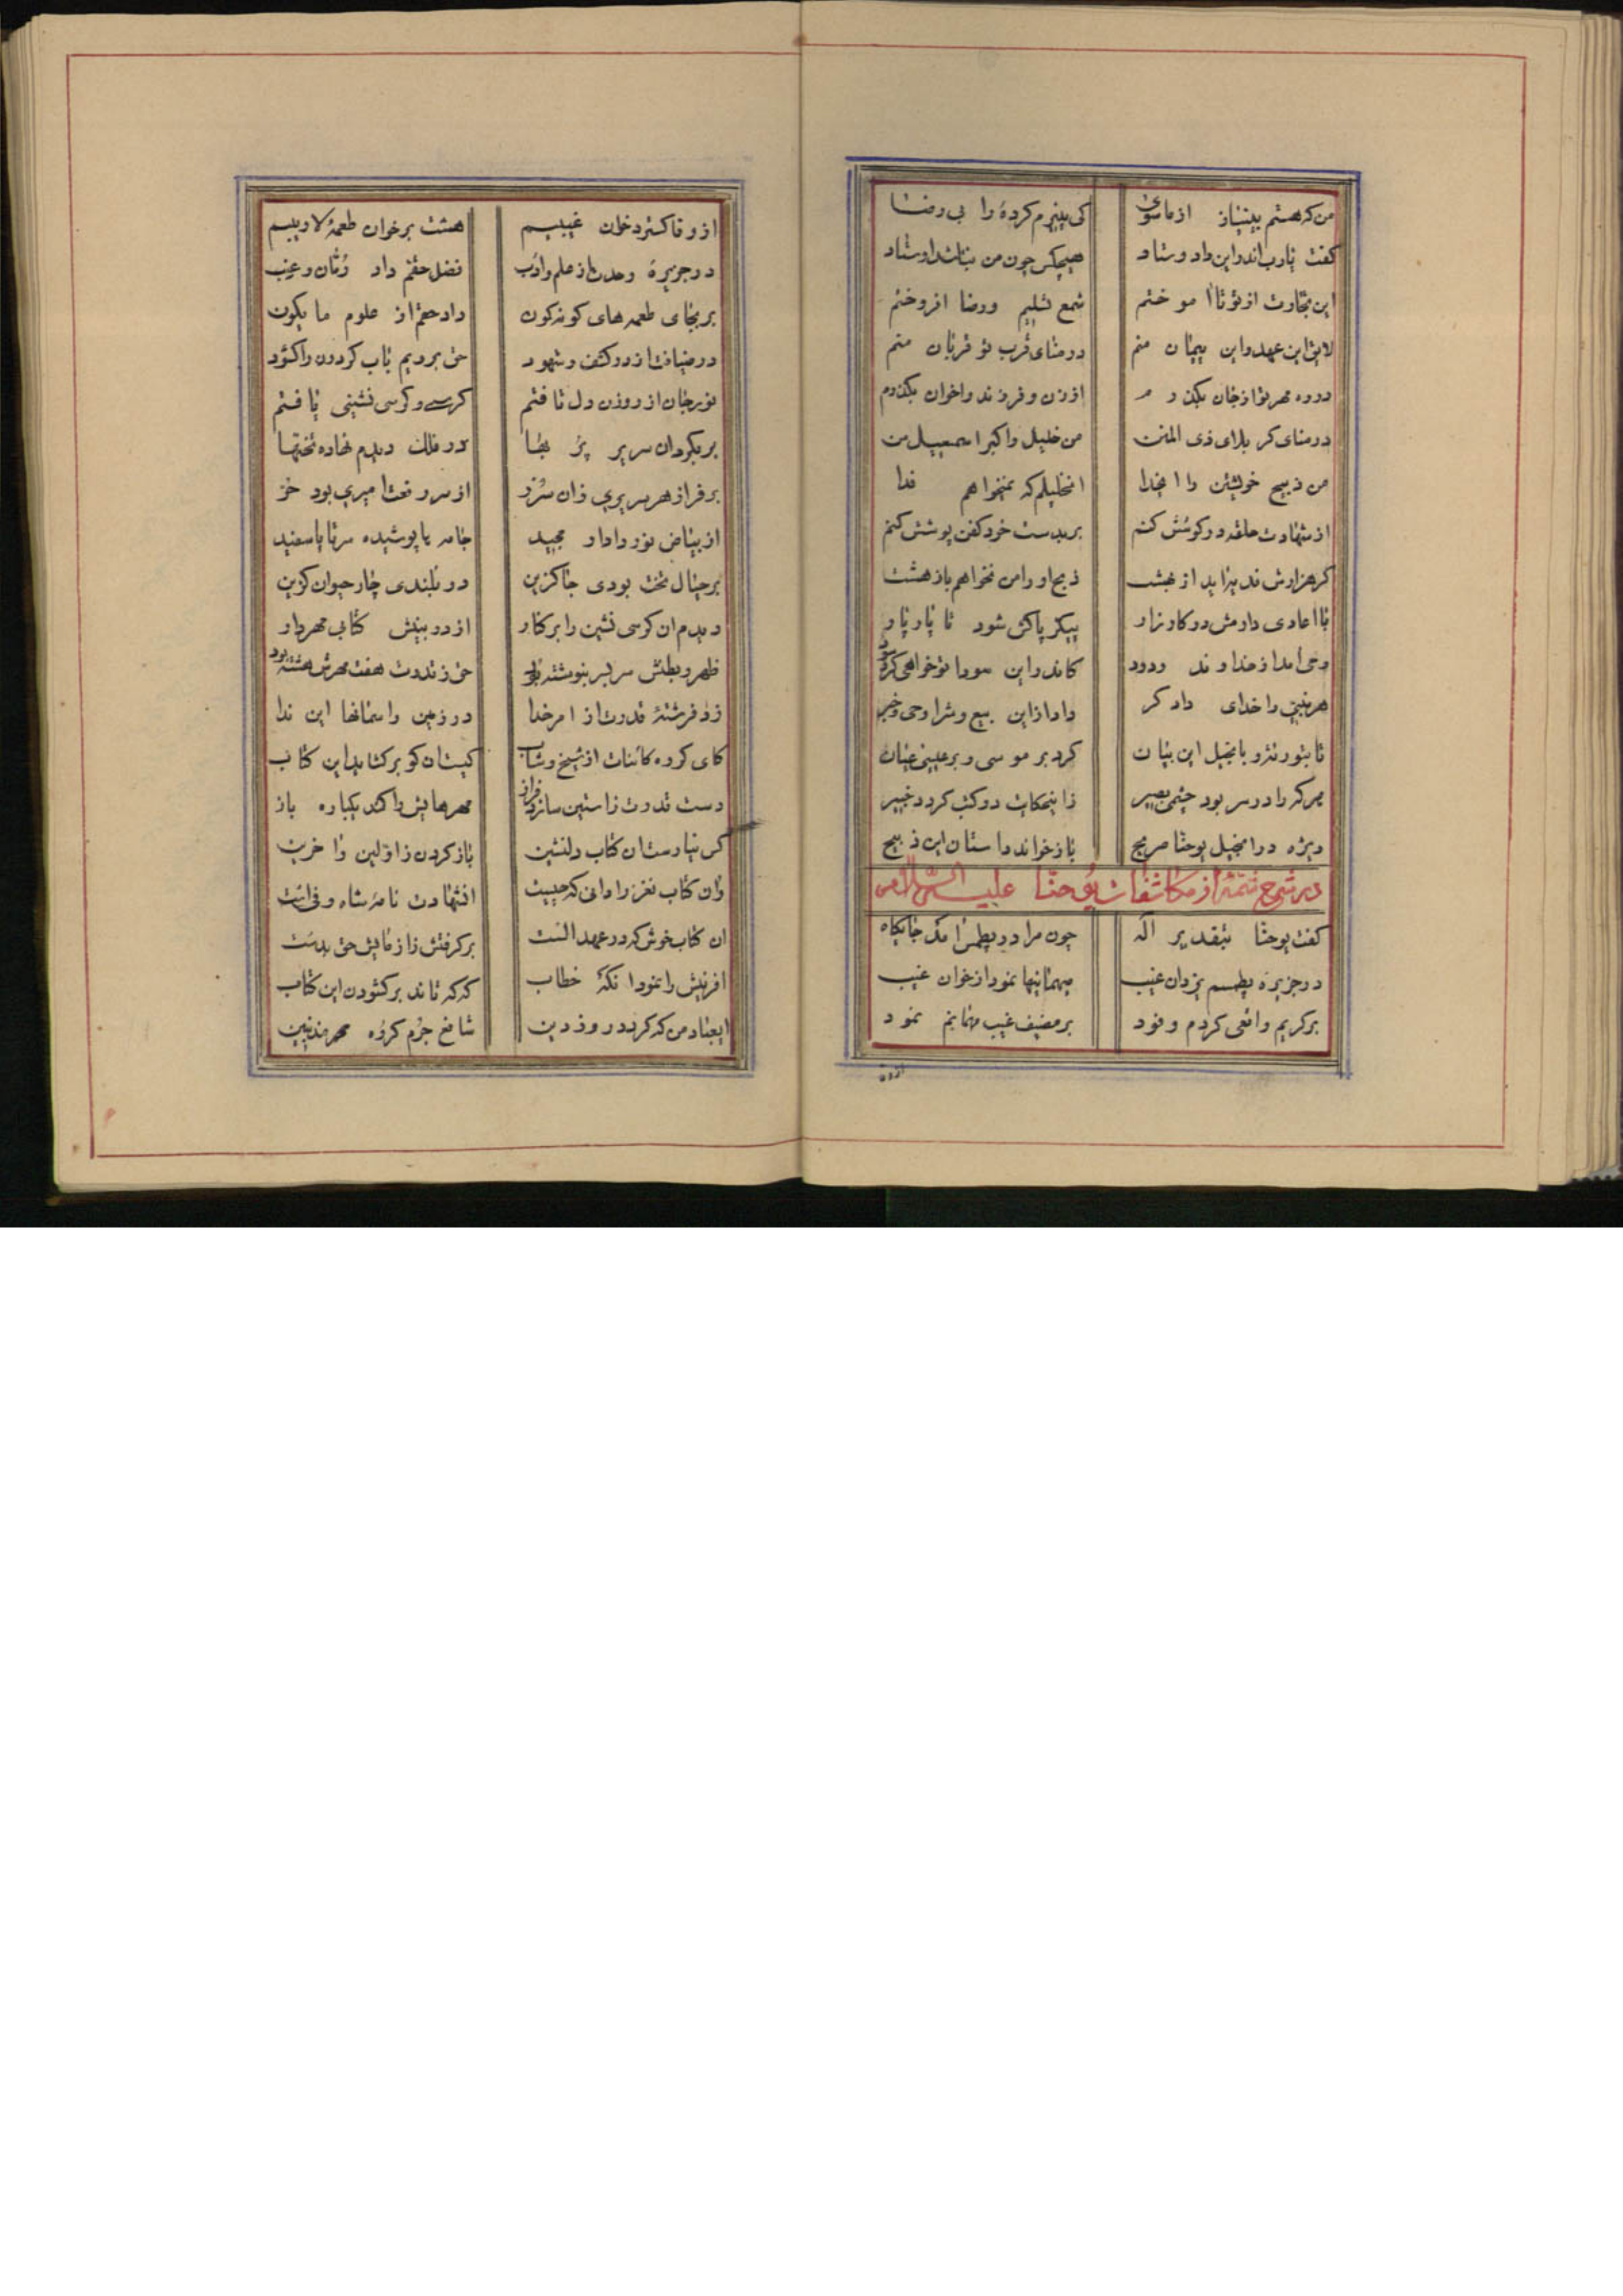 من که هستم بینیاز از ماسوی کی پذیرم کردهٔ را بی رضا
کفت یارب اندر این داد و ستاد هیچکس چون من نباشد اوستاد
این تجارت از تو تا آموختم شمع تسلیم و رضا افروختم
لایق این عهد و این پیمان منم در منای قرب تو قربان منم
در ره مهر تو از جان بگذرم از زن و فرزند و اخوان بگذرم
در منای کربلای ذی المنن من خلیل و اکبر اسمعیل من
من ذبیح خویشتن را ای خدا انخلیلم که نمیخواهم فدا
از شهادت حلقه در کوشش کنم بر بدست خود کفن پوشش کنم
کر هزارش فدیه آید از بهشت ذبح او را من نخواهم باز هشت
با اعادی دارمش در کارزار پیکر پاکش شود تا پار پار
وحی امد از خداوند ودود کاندر این سودا تو خواهی کرد سود
هر نبیی را خدای دادکر داد از این بیع و شرا وحی و خبر
تا بتورته و بانجیل این بیان کرد بر موسی و بر عیسی عیان
هر که را در سر بود چشمی بصیر زاینحکایت در کتب کردد خبیر
ویژه در انجیل یوحنا صریح باز خواند داستان این ذبیح
در شرح تتمهٔ از مکاشفات یوحنا علیه السلام
کفت یوحنا بتقدیر اله چون مرا در پطمس امد جایکاه
در جزیرهٔ پطمسم یزدان غیب میهمانیها نمود از خوان غیب
بر کریم واقعی کردم وفود بر مضیف غیب مهمانیم نمود
ازوفا
از وفا کسترد خوان غیبیم هشت بر خوان طعمهٔ لاریبیم
در جزیرهٔ وحدت از علم و ادب فضل حقم داد رمان و عنب
بر بجای طعمه های کونه کون داد حقم از علوم ما یکون
در ضیافت از در کشف و شهود حق برویم باب کردون را کشود
نور جان از روزن دل تافتم کرسی و کرسی نشینی یافتم
بر بکرد ان سریر پر بها در فلک دیدم نهاده تختها
بر فراز هر سریری زان سرر از سر رفعت امیری بود حر
از بیاض نور دادار مجید جامه ها پوشیده سر تا پا سفید
بر جبال تخت بودی جاکزین در بلندی چار حیوان کزین
دیدم ان کرسی نشین را بر کنار از در بینش کتابی مهردار
ظهر و بطنش سربسر بنوشته بود حق ز قدرت هفت مهرش هشته بود
زد فرشتهٔ قدرت از امر خدا در زمین و اسمانها این ندا
کای کروه کائنات از شیخ و شاب کیست ان کو بر کشاید این کتاب
دست قدرت ز استین سازد فراز مهرهایش را کند یکباره باز
کس نیارست ان کتاب دلنشین باز کردن ز اولین و اخرین
وان کتاب نغز را دانی که چیست انشهادت نامهٔ شاه وفی است
ان کتاب خوش که در عهد الست بر کرفتش ز ازمایش حق بدست
افرینش را نمود انکه خطاب که که تاند بر کشودن این کتاب
ایعباد من که کردد روز دین شافع جرم کروه مجرمین